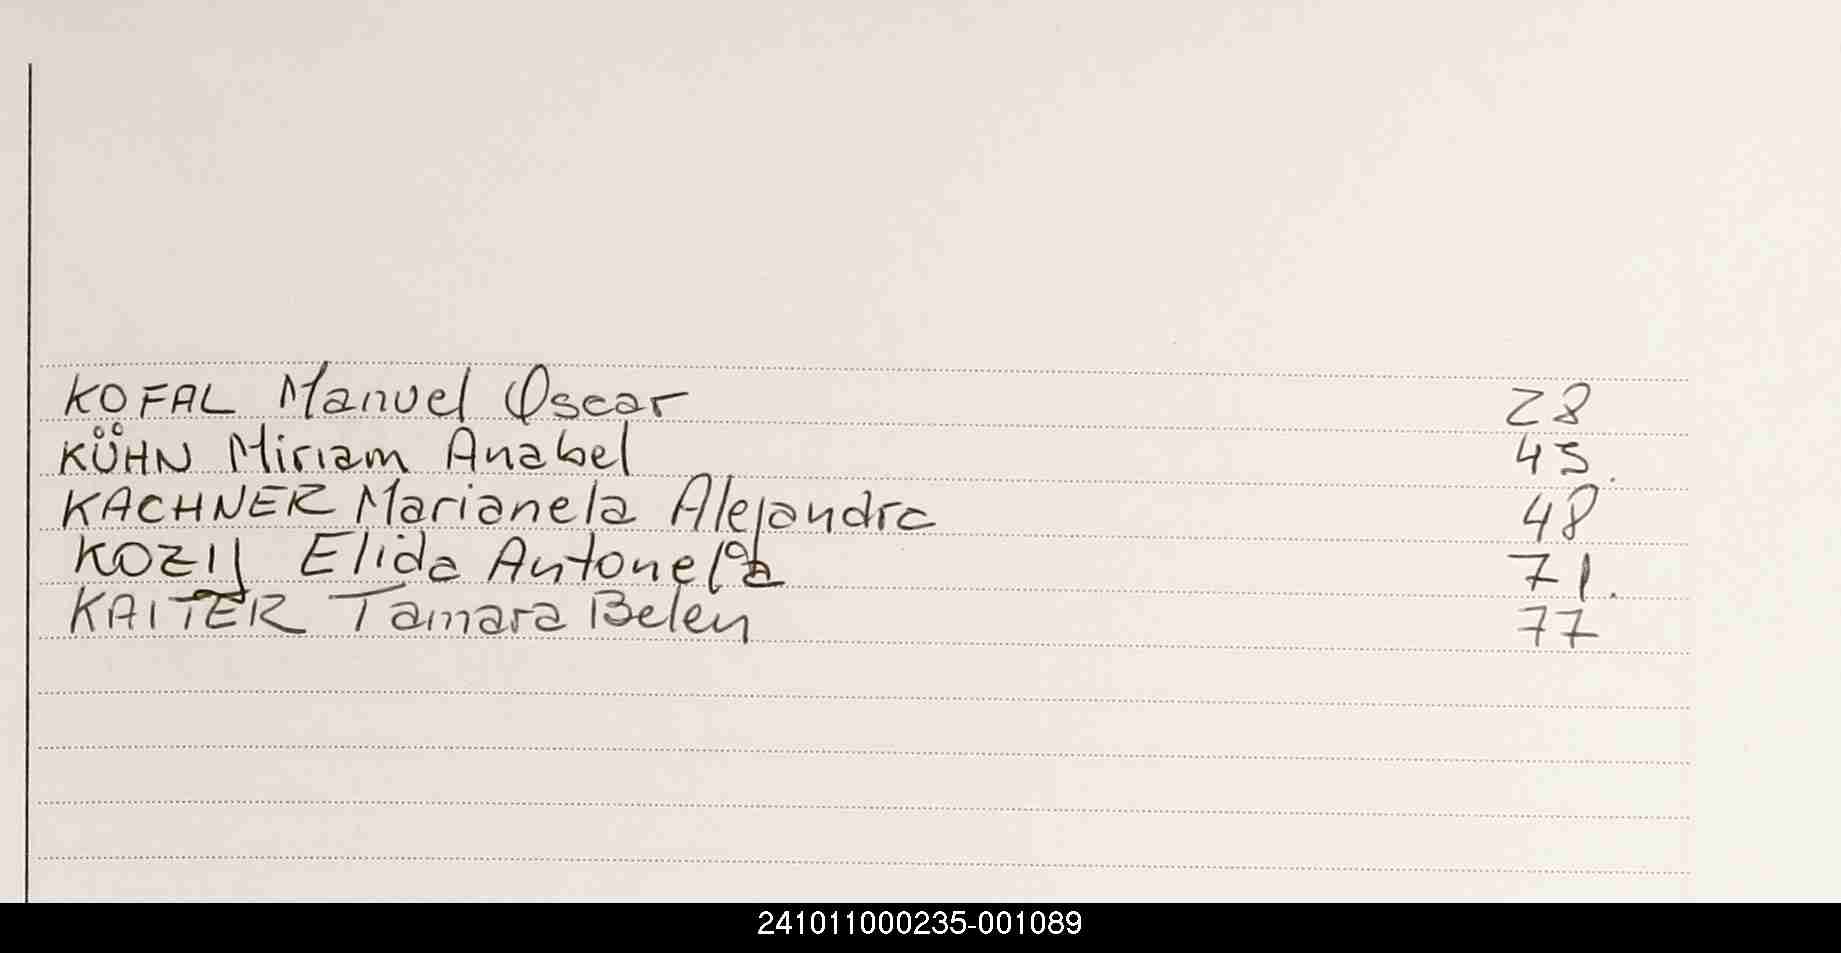 KOFAL Manuel Oscar 28
KÜHN Miriam Anabel 45.
KACHNER Marianela Alejandra 48
KOZIJ Elida Antonela 71.
KAITER Tamara Belen 77
241011000235-001089